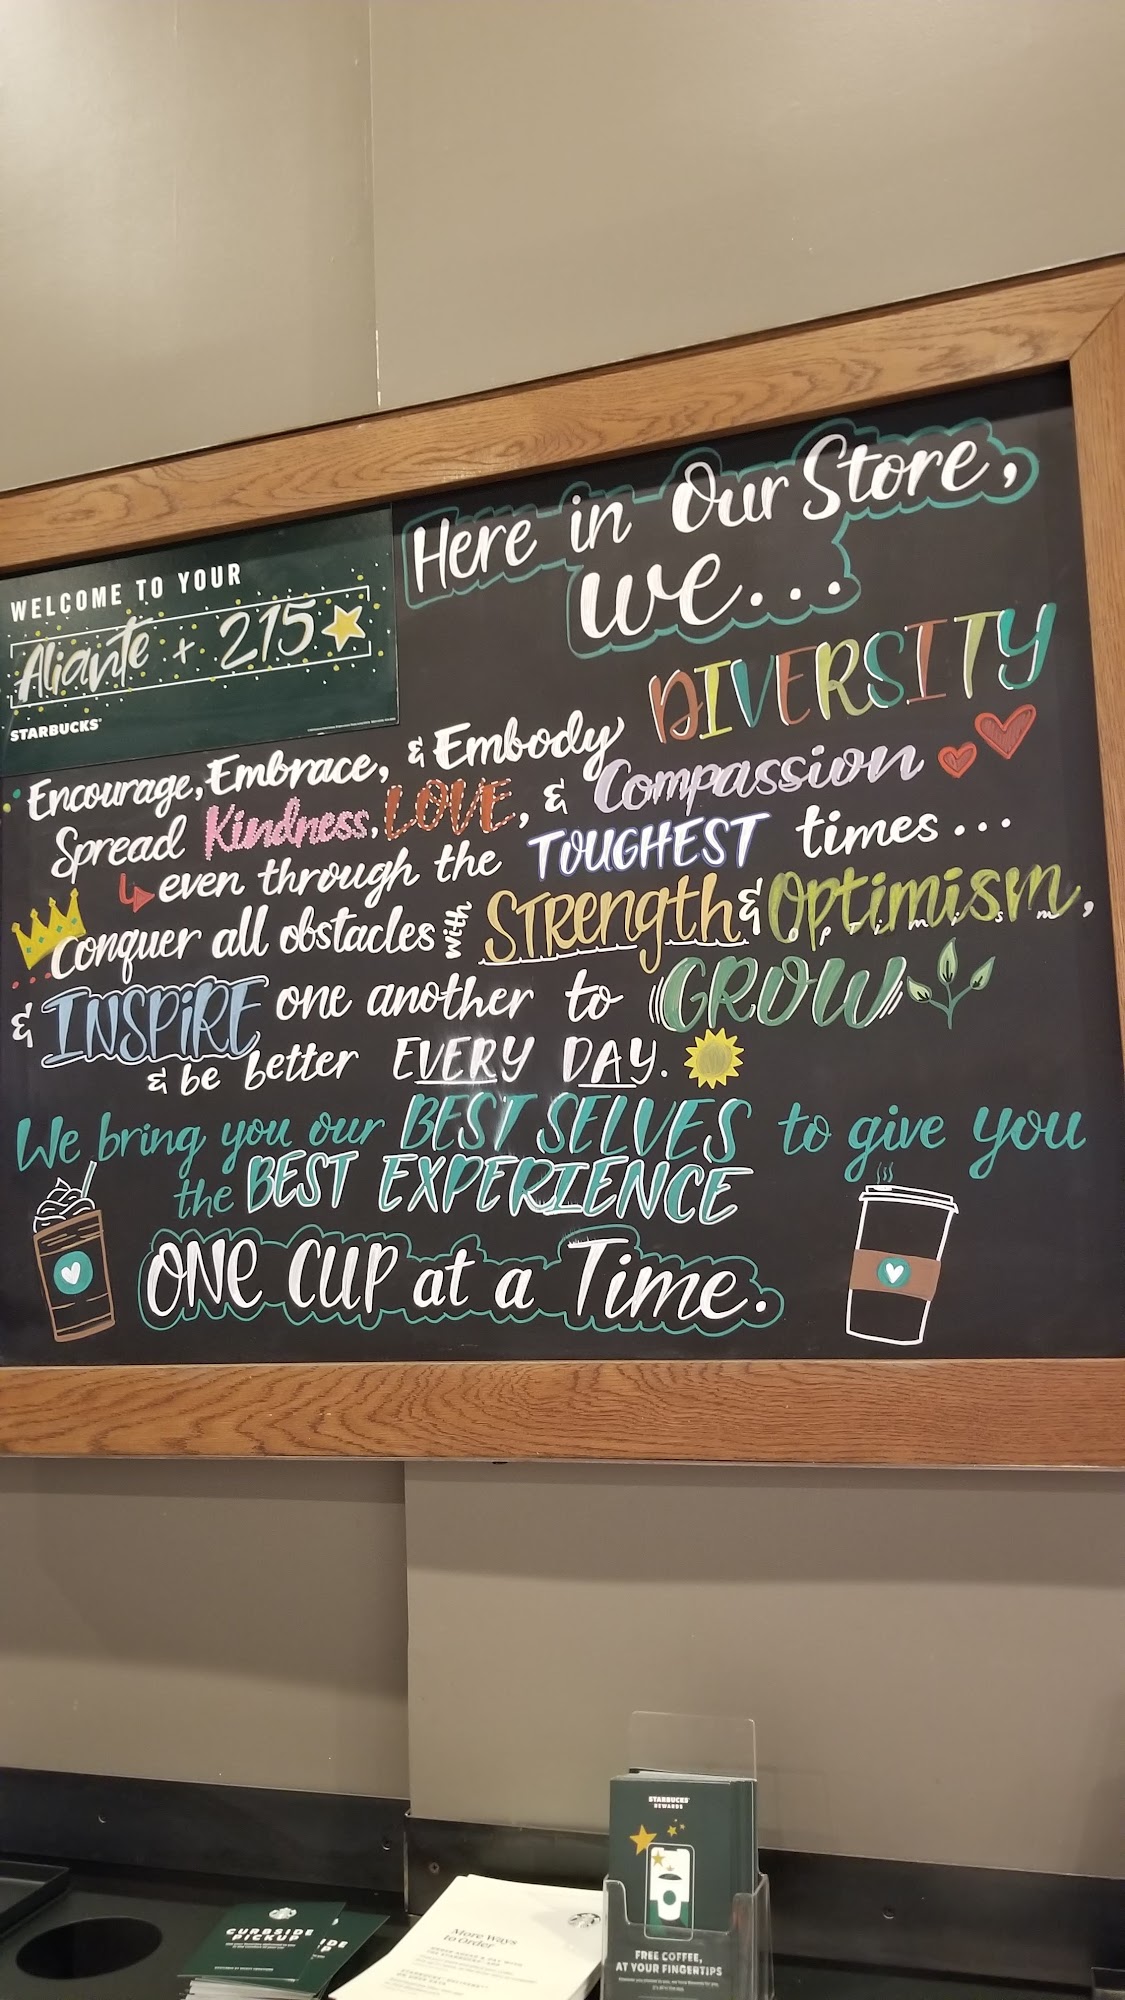 WELCOME TO YOUR
Aliante + 215
STARBUCKS
Here in Our Store,
we...
Encourage, Embrace, & Embody DIVERSITY
Spread Kindness, LOVE, & Compassion
even through the TOUGHEST times...
Conquer all obstacles with STRength & Optimism,
OPTimism
& INSPiRE one another to GROW
& be better EVERY DAY.
We bring you our BEST SELVES to give you
the BEST EXPERIENCE
ONE CUP at a Time.
STARBUCKS
REWARDS
FREE COFFEE,
AT YOUR FINGERTIPS
CURBSIDE
PICKUP
More Ways
to Order